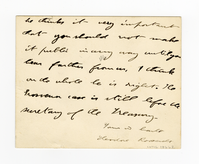 he thinks it very important
that you should not make
it public in any way until you
hear further from us, I think
on the whole he is right. The
case is still before the
secretary of the Treasury.
Yours in haste